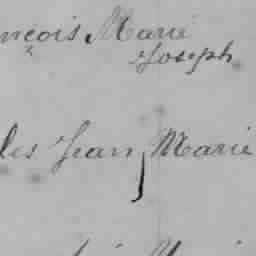 nçois Marie
Joseph
les Jean Marie
Marie